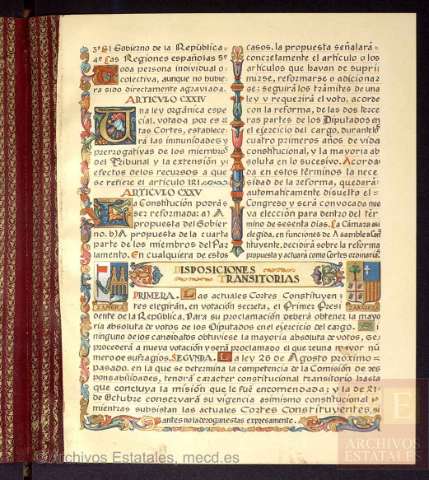 3º El Gobierno de la República.
4º Las Regiones españolas 5º
Toda persona individual o
colectiva, aunque no hubie-
ra sido directamente agraviada.
ARTICULO CXXIV
Una ley orgánica espe-
cial, votada por es
tas Cortes, establece-
rá las inmunidades y
prerrogativas de los miembros
del Tribunal y la extensión y
efectos de los recursos a que
se refiere el artículo 121
ARTICULO CXXV
La Constitución podrá
ser reformada: a) A
propuesta del Gobier
no. b) A propuesta de la cuarta
parte de los miembros del Par
lamento. En cualquiera de estos
casos, la propuesta señalará
concretamente el artículo o los
artículos que hayan de supri
mirse, reformarse o adicionar
se; seguirá los trámites de una
ley y requerirá el voto, acorde
con la reforma, de las dos terce
ras partes de los Diputados en
el ejercicio del cargo, durante los
cuatro primeros años de vida
constitucional, y la mayoría ab
soluta en lo sucesivo. Acorda
da en estos términos la nece
sidad de la reforma, quedará
automáticamente disuelto el
Congreso y será convocada nue
va elección para dentro del tér
mino de sesenta días. La Cámara así
elegida, en funciones de Asamblea Cons
tituyente, decidirá sobre la reforma
propuesta y actuará como Cortes ordinarias
DISPOSICIONES
TRANSITORIAS
ZAMORA
ZARAGOZA
PRIMERA. Las actuales Cortes Constituyen
tes elegirán, en votación secreta, el Primer Presi
dente de la República. Para su proclamación deberá obtener la mayo
ría absoluta de votos de los Diputados en el ejercicio del cargo. Si
ninguno de los candidatos obtuviese la mayoría absoluta de votos, se
procederá a nueva votación y será proclamado el que reuna mayor nú
mero de sufragios. SEGUNDA. La ley de 26 de Agosto próximo
pasado, en la que se determina la competencia de la Comisión de res
ponsabilidades, tendrá carácter constitucional transitorio hasta
que concluya la misión que le fué encomendada; y la de 21
de Octubre conservará su vigencia asimismo constitucional
mientras subsistan las actuales Cortes Constituyentes, si
antes no la derogan éstas expresamente.
© Archivos Estatales, mecd.es
ARCHIVOS
ESTATALES